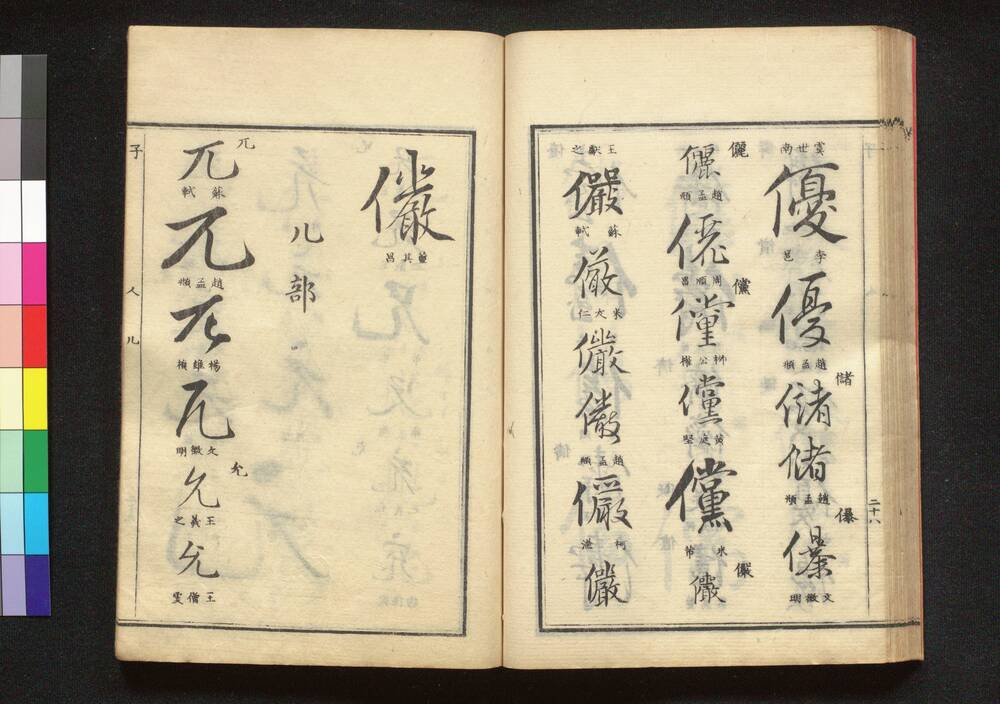 二十八
虞世南
優
李邕
優
趙孟頫
儲
儲
儲
趙孟頫
儤
儤
文徵明
儷
儷
趙孟頫
儷
周順昌
儻
儻
柳公權
儻
黃庭堅
儻
米芾
儼
儼
王獻之
儼
蘇軾
儼
米友仁
儼
儼
趙孟頫
儼
儼
儼
董其昌
儿部
兀
兀
蘇軾
兀
趙孟頫
兀
楊維楨
兀
文徵明
允
允
王羲之
允
王僧虔
子
人儿